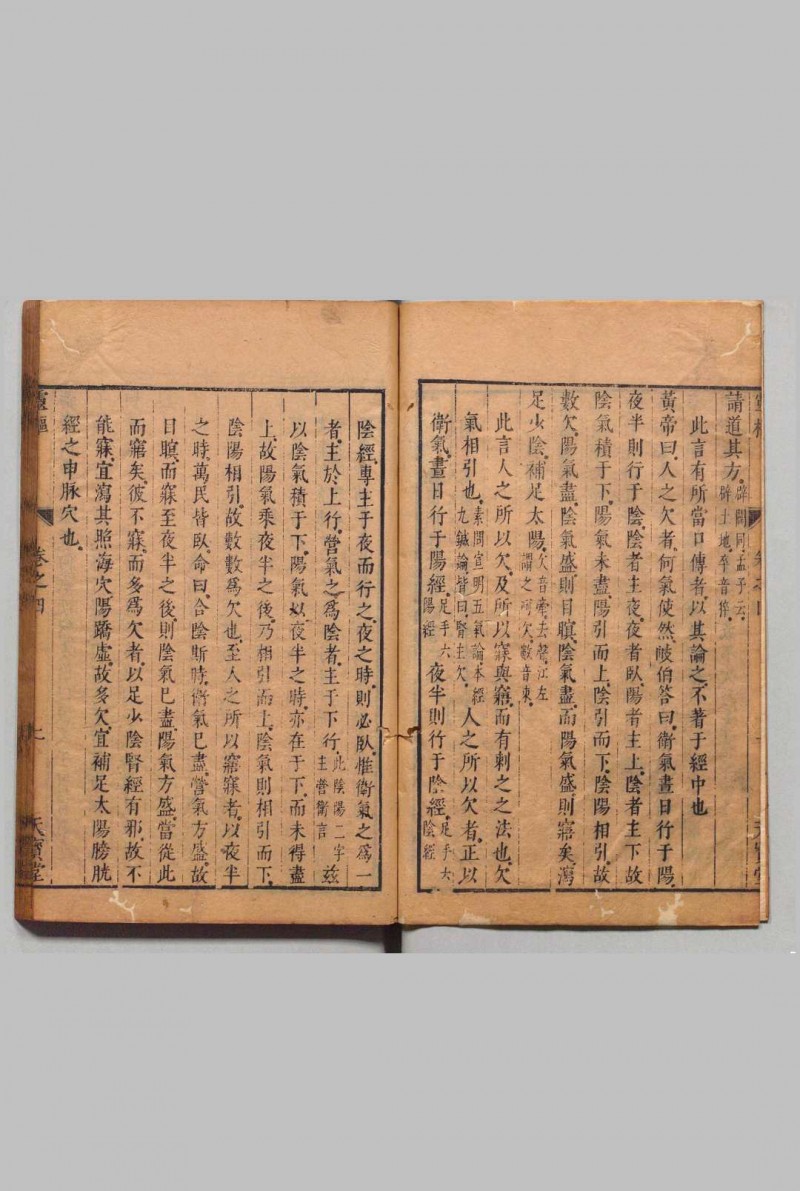 請道其方。辟闢同。孟子云。辟土地。卒音猝。
此言有所當口傳者。以其論之不著于經中也
黃帝曰。人之欠者。何氣使然。岐伯答曰。衛氣晝日行于陽。
夜半則行于陰。陰者主夜。夜者臥。陽者主上。陰者主下。故
陰氣積于下。陽氣未盡。陽引而上。陰引而下。陰陽相引。故
數欠。陽氣盡。陰氣盛。則目瞑。陰氣盡。而陽氣盛。則寤矣。瀉
足少陰。補足太陽。欠音牽去聲。江左謂之呵欠。數音朔。
此言人之所以欠。及所以寐與寤。而有刺之之法也。欠
氣相引也。素問宣明五氣論。本經九鍼論。皆曰腎主欠。人之所以欠者。正以
衛氣晝日行于陽經。足手六陽經夜半則行于陰經。足手六陰經
陰經專主于夜而行之。夜之時。則必臥。惟衛氣之爲一
者。主於上行。營氣之爲陰者。主于下行。此陰陽二字主營衛言茲
以陰氣積于下。陽氣以夜半之時。亦在于下。而未得盡
上。故陽氣乘夜半之後。乃相引而上。陰氣則相引而下。
陰陽相引。故數數爲欠也。至人之所以寤寐者。以夜半
之時。萬民皆臥。命曰合陰。斯時。衛氣已盡。營氣方盛。故
日瞑。而寐至夜半之後。則陰氣已盡。陽氣方盛。當從此
而寤矣。彼不寐。而多爲欠者。以足少陰腎經有邪。故不
能寐。宜瀉其照海穴。陽蹻虛。故多欠。宜補足太陽膀胱
經之申脈穴也。
靈樞
卷之四
七
天寶堂